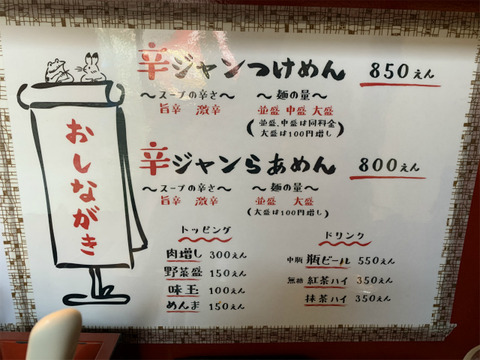 おしながき
辛ジャンつけめん 850えん
〜スープの辛さ〜 〜麺の量〜
旨辛 激辛 並盛 中盛 大盛
(並盛、中盛は同料金
大盛は100円増し)
辛ジャンらあめん 800えん
〜スープの辛さ〜 〜麺の量〜
旨辛 激辛 並盛 大盛
(大盛は100円増し)
トッピング
肉増し 300えん
野菜盛 150えん
味玉 100えん
めんま 150えん
ドリンク
中瓶 瓶ビール 550えん
無糖 紅茶ハイ 350えん
抹茶ハイ 350えん